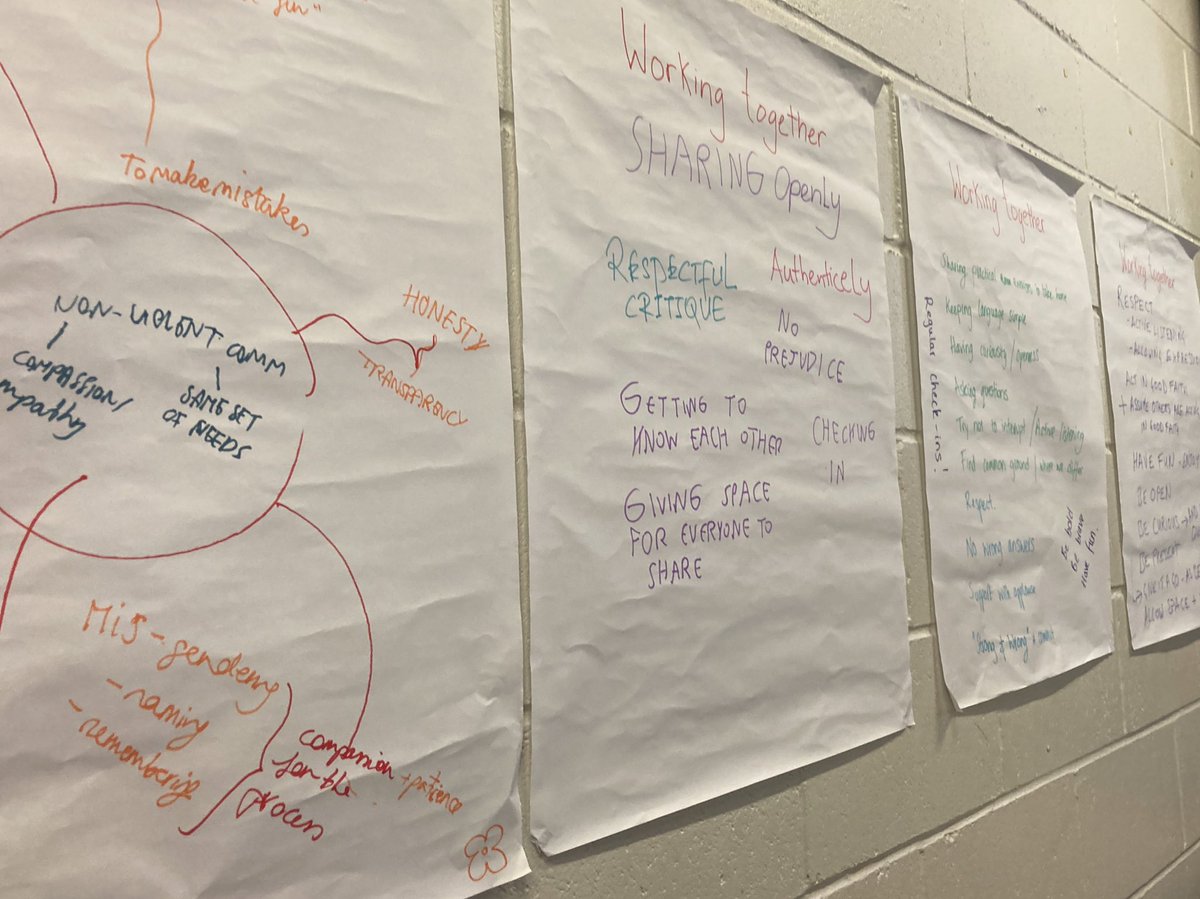 To make mistakes
HONESTY
TRANSPARENCY
NON-VIOLENT COMM
COMPASSION/
mpathy
SAME SET
OF NEEDS
Mis-gendering
-naming
-remembering
compassion + patience
for the
process
Working together
SHARING Openly
RESPECTFUL
CRITIQUE
Authentically
NO
PREJUDICE
GETTING TO
KNOW EACH OTHER
CHECKING
IN
GIVING SPACE
FOR EVERYONE TO
SHARE
Working together
Regular check-ins!
Sharing practical
Keeping language simple
Having curiosity/openness
Asking questions
Try not to interrupt/Active listening
Find common ground/where we differ
Respect.
No wrong answers
Support with applause
"Strong & wrong" +
Be bold
Be brave
Have fun.
Working together
RESPECT
-ACTIVE LISTENING
-ALLOWING
ACT IN GOOD FAITH
+ ASSUME OTHERS ARE
IN GOOD FAITH
HAVE FUN -
BE OPEN
BE CURIOUS
BE PATIENT
ALLOW SPACE +